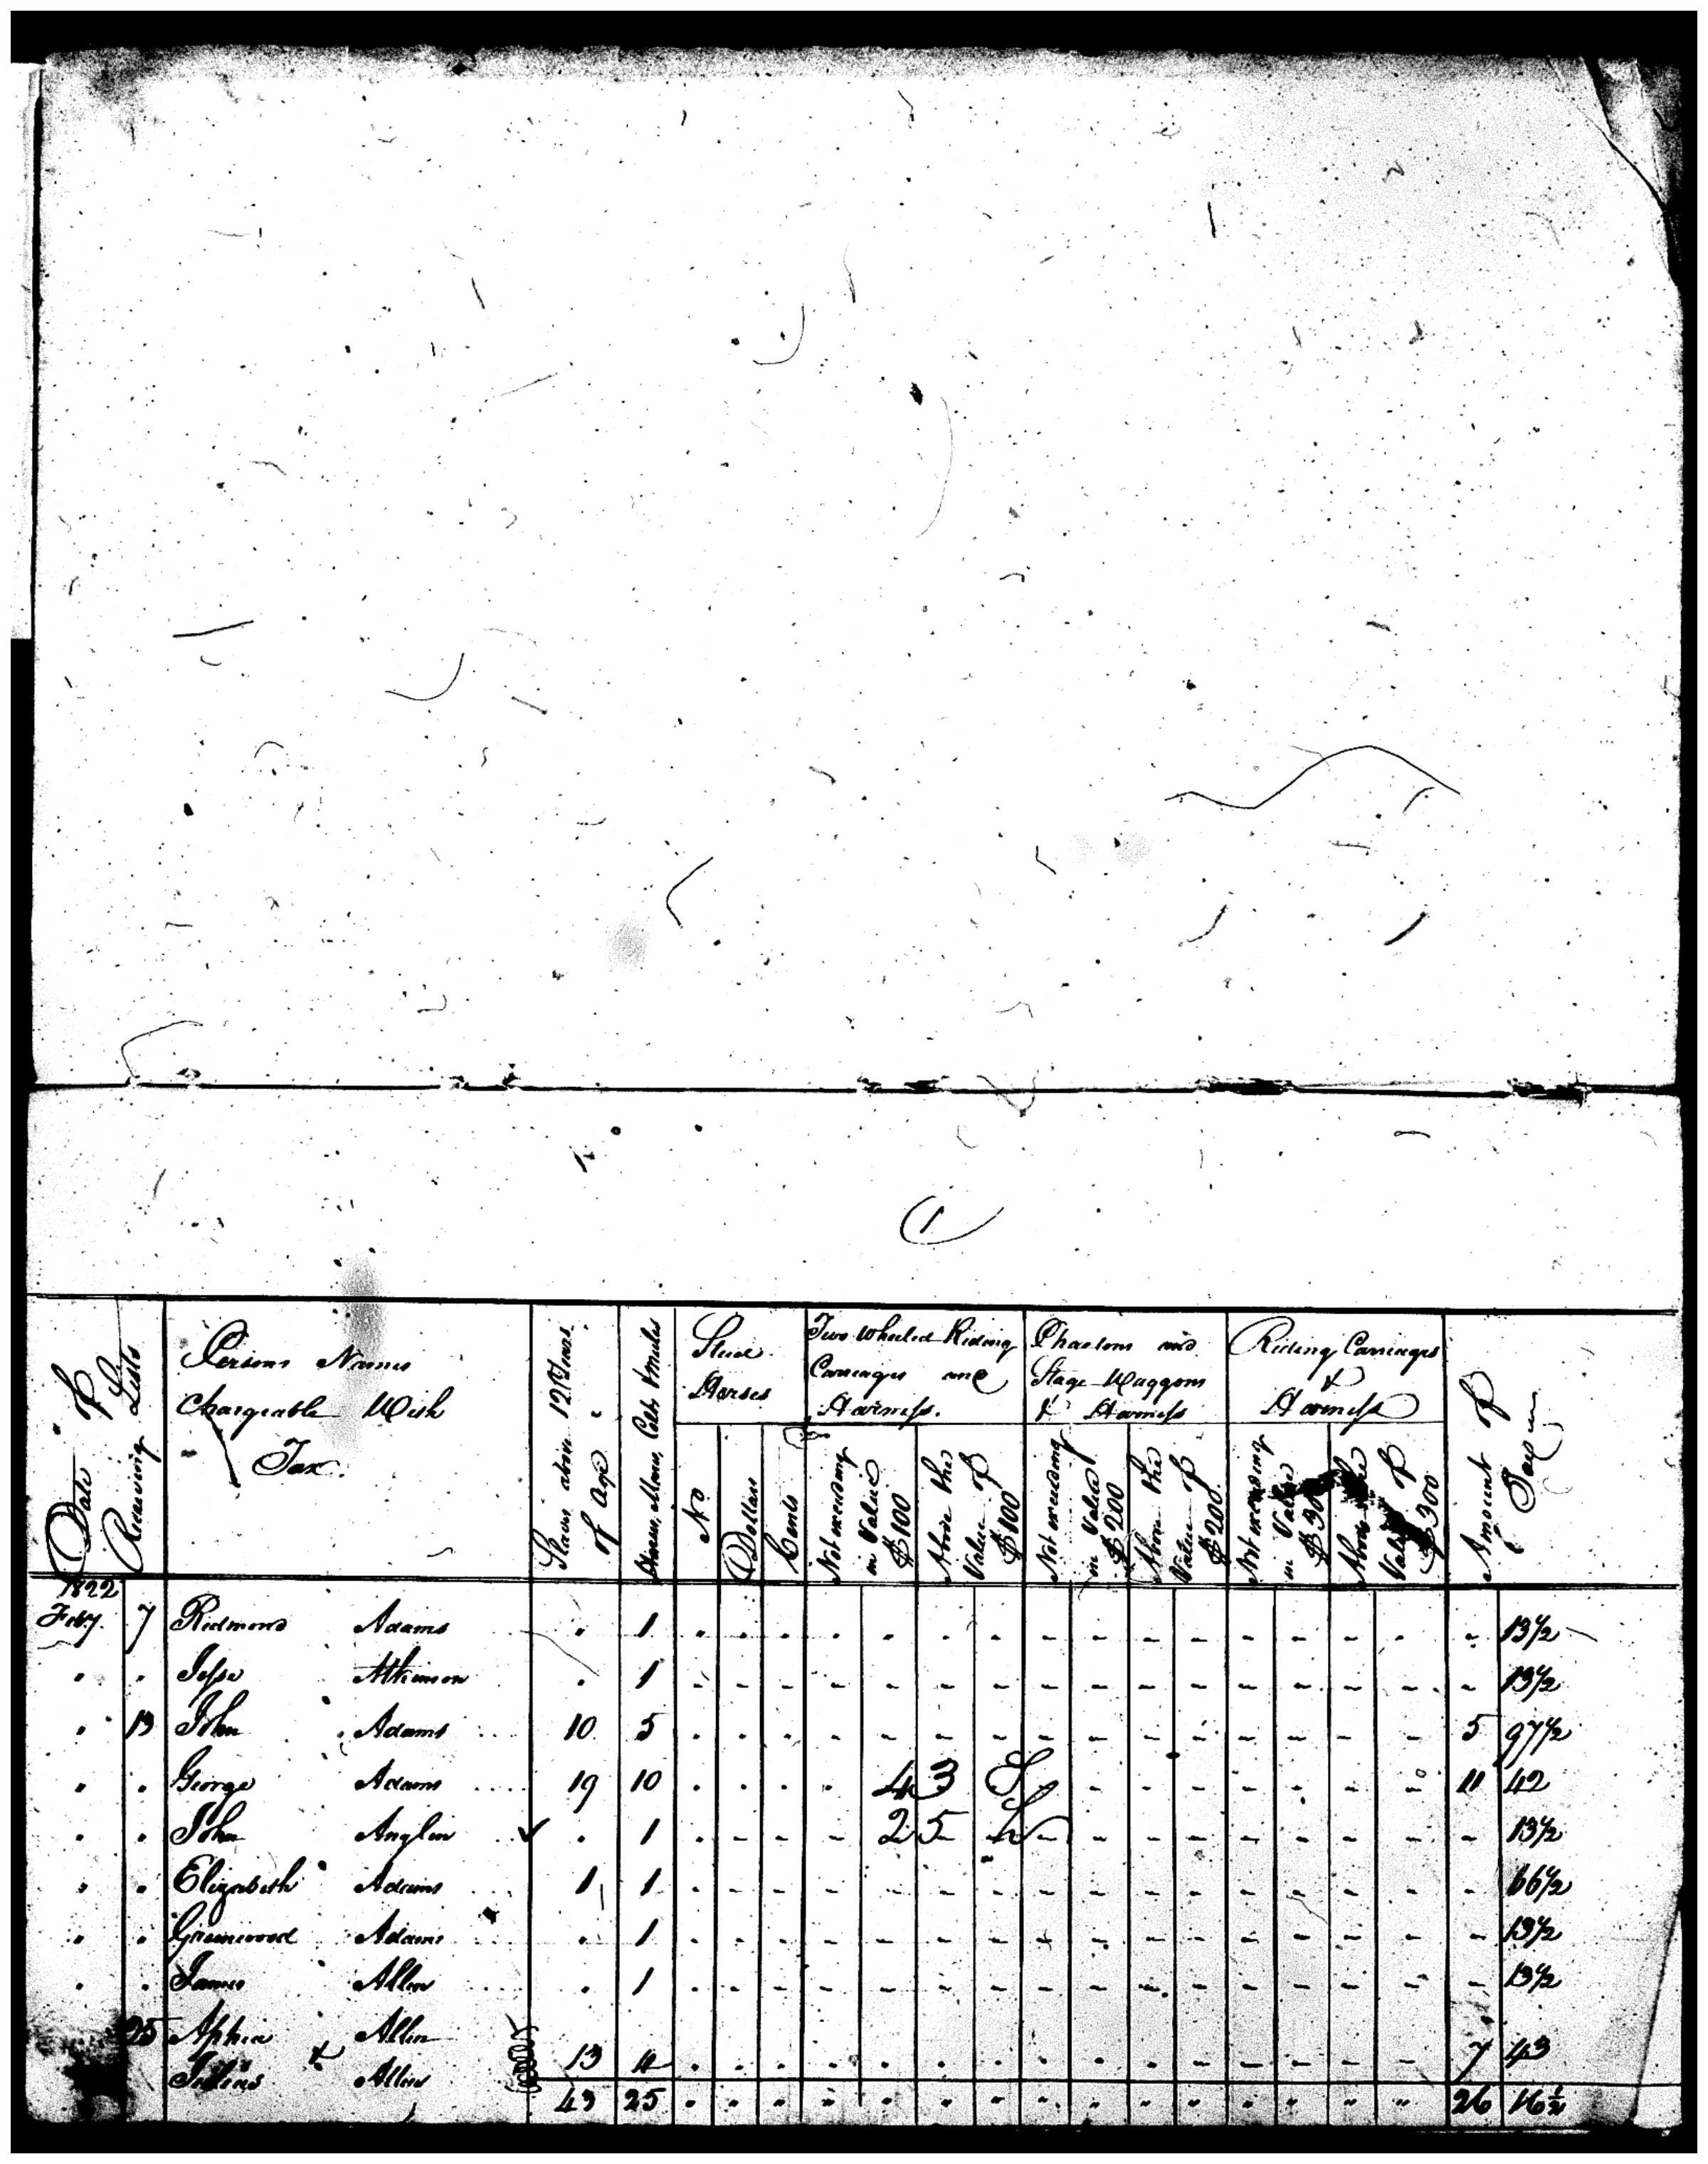 1
Date of Receiving Lists
Persons Names
Chargeable With
Tax.
Slaves above 12 Years
of Age
Horses, Mares, Colts & mules
Stud
Horses
No
Dollars
Cents
Two Wheeled Riding
Carriages and
Harness.
Not exceeding
in Value
$100
Above the
Value of
$100
Phaetons and
Stage Waggons
& Harness
Not exceeding
in Value
$200
Above the
Value of
$200
Riding Carriages
&
Harness
Not exceeding
in Value
$300
Above the
Value of
$300
Amount of
Tax
1822
Feby. 7 Redmond Adams . 1 . . . . . . . - - - - - - . . - 13½
" . Jesse Atkinson . 1 - - - - - - - - - - - - - - - - 13½
" 13 John Adams 10 5 . . . - - - - - - - - - - - - 5 97½
" . George Adams 19 10 . . . . 43 S - - - - - - - 11 42
" . John Anglin ✓ . 1 . - - - 25 - - - - - - - - - 13½
" . Elizabeth Adams 1 1 . - - - - - - - - - - - - - - - 66½
" . Greenwood Adams . 1 . - - - - - - - - - - - - - - - 13½
. . James Allen . 1 . . - - - - - - - - - - - - - - 13½
25 Aphia Allen
& Julius Allen 13 4 . . . . . . . . . . . - - - - 7 43
43 25 " " " " " " " " " " " " " " " 26 16½